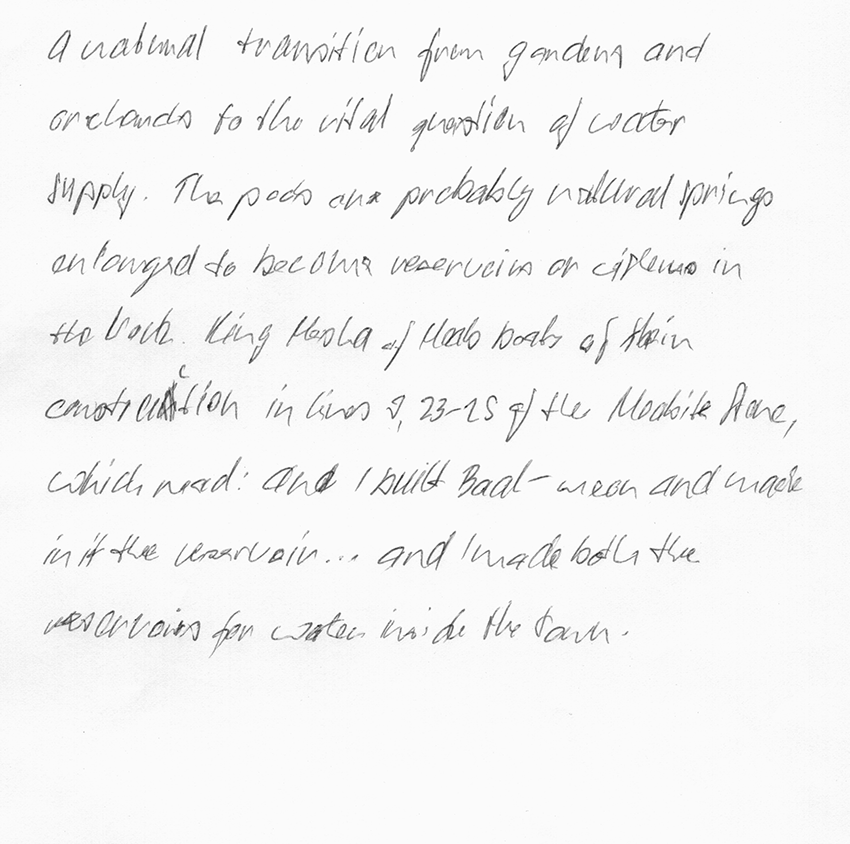 A natural transition from gardens and
orchards to the vital question of water
supply. The pools are probably natural springs
enlarged to become reservoirs or cisterns in
the rock. King Mesha of Moab boasts of their
construction in lines 9, 23-25 of the Moabite Stone,
which read: and I built Baal-meon and made
in it the reservoir... and I made both the
reservoirs for water inside the town.